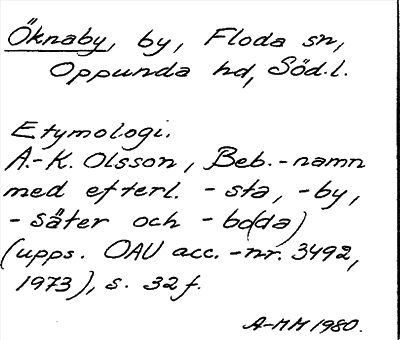 Öknaby, by, Floda sn,
Oppunda hd, Söd.l.
Etymologi.
A.-K. Olsson, Beb.-namn
med efterl. -sta, -by,
-säter och -bo(da)
(upps. OAU acc.-nr. 3492,
1973), s. 32f.
A-MM 1980.